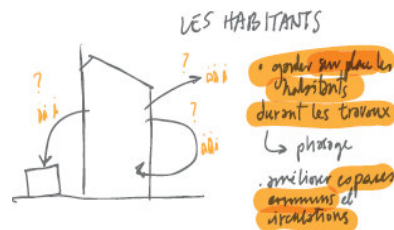 LES HABITANTS
?
?
?
• garder sur place les
habitants
durant les travaux
↳ phasage
• améliorer espaces
communs et
circulations